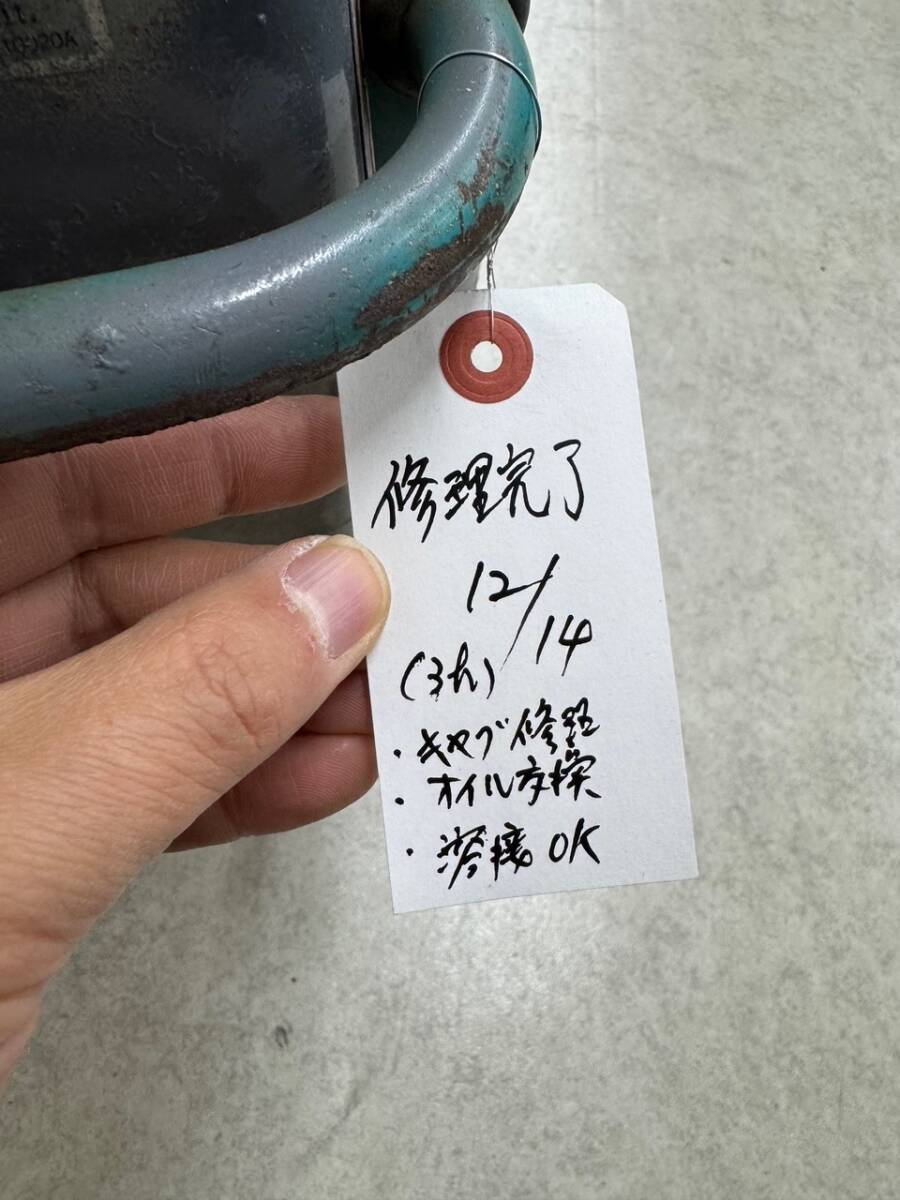 10920A
修理完了
12/14
(3h)
・キャブ修理
・オイル交換
・溶接OK